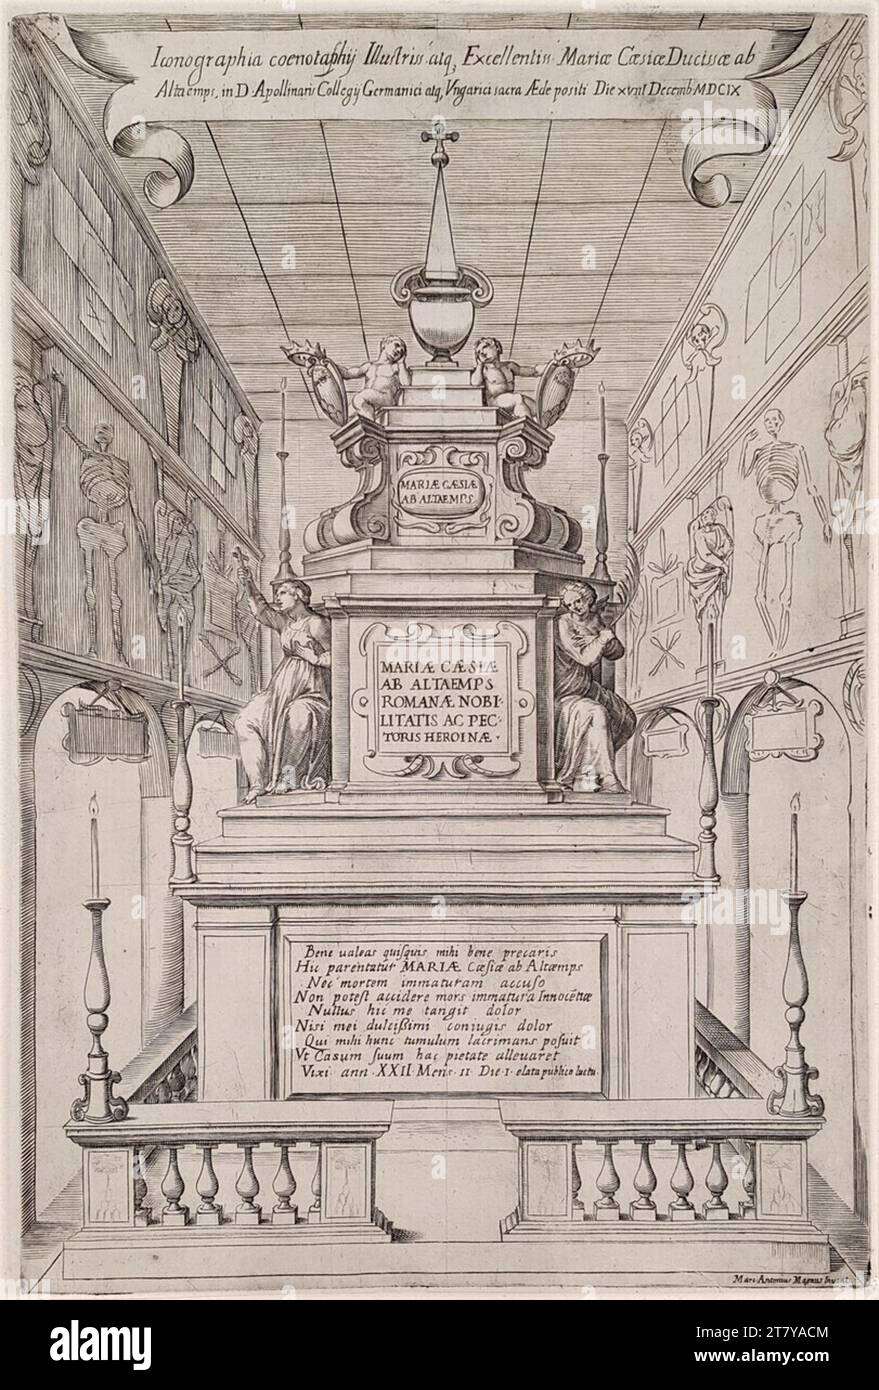 Iconographia coenotaphij Illustris.atq, Excellentis. Mariæ Cæsiæ Ducissæ ab
Altaemps, in D. Apollinaris Collegij Germanici atq, Vngarici sacra Æde positi Die XVIII Decemb. MDCIX
MARIÆ CÆSIÆ
AB ALTAEMPS
MARIÆ CÆSIÆ
AB ALTAEMPS
ROMANÆ NOBI-
LITATIS AC PEC-
TORIS HEROINÆ.
Bene ualeas quisquis mihi bene precaris
Hic parentatur MARIÆ Cæsiæ ab Altæmps
Nec mortem immaturam accuso
Non potest accidere mors immatura Innocētiæ
Nullus hic me tangit dolor
Nisi mei dulcissimi coniugis dolor
Qui mihi hunc tumulum lacrimans posuit
Vt Casum suum hac pietate alleuaret
Vixi ann. XXII. Mens. II. Die. I. elata publico luctu.
Marc Antonius Magnus
alamy
Image ID: 2T7YACM
www.alamy.com